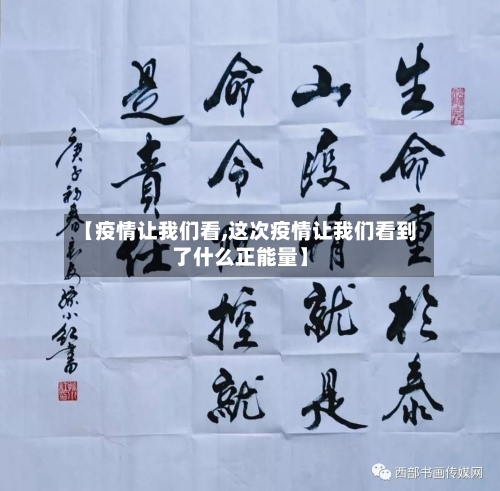 生命重於泰
山疫情就是
命令防控就
是責任
庚子初春
【疫情让我们看,这次疫情让我们看到
了什么正能量】
西部书画传媒网